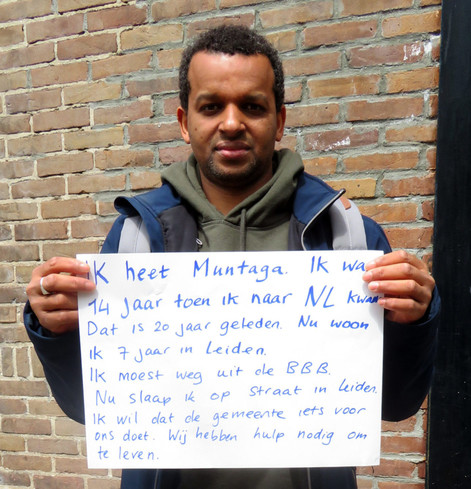 IK heet Muntaga. Ik wa
14 jaar toen ik naar NL kwam
Dat is 20 jaar geleden. Nu woon
ik 7 jaar in Leiden.
Ik moest weg uit de BBB.
Nu slaap ik op straat in Leiden.
Ik wil dat de gemeente iets voor
ons doet. Wij hebben hulp nodig om
te leven.